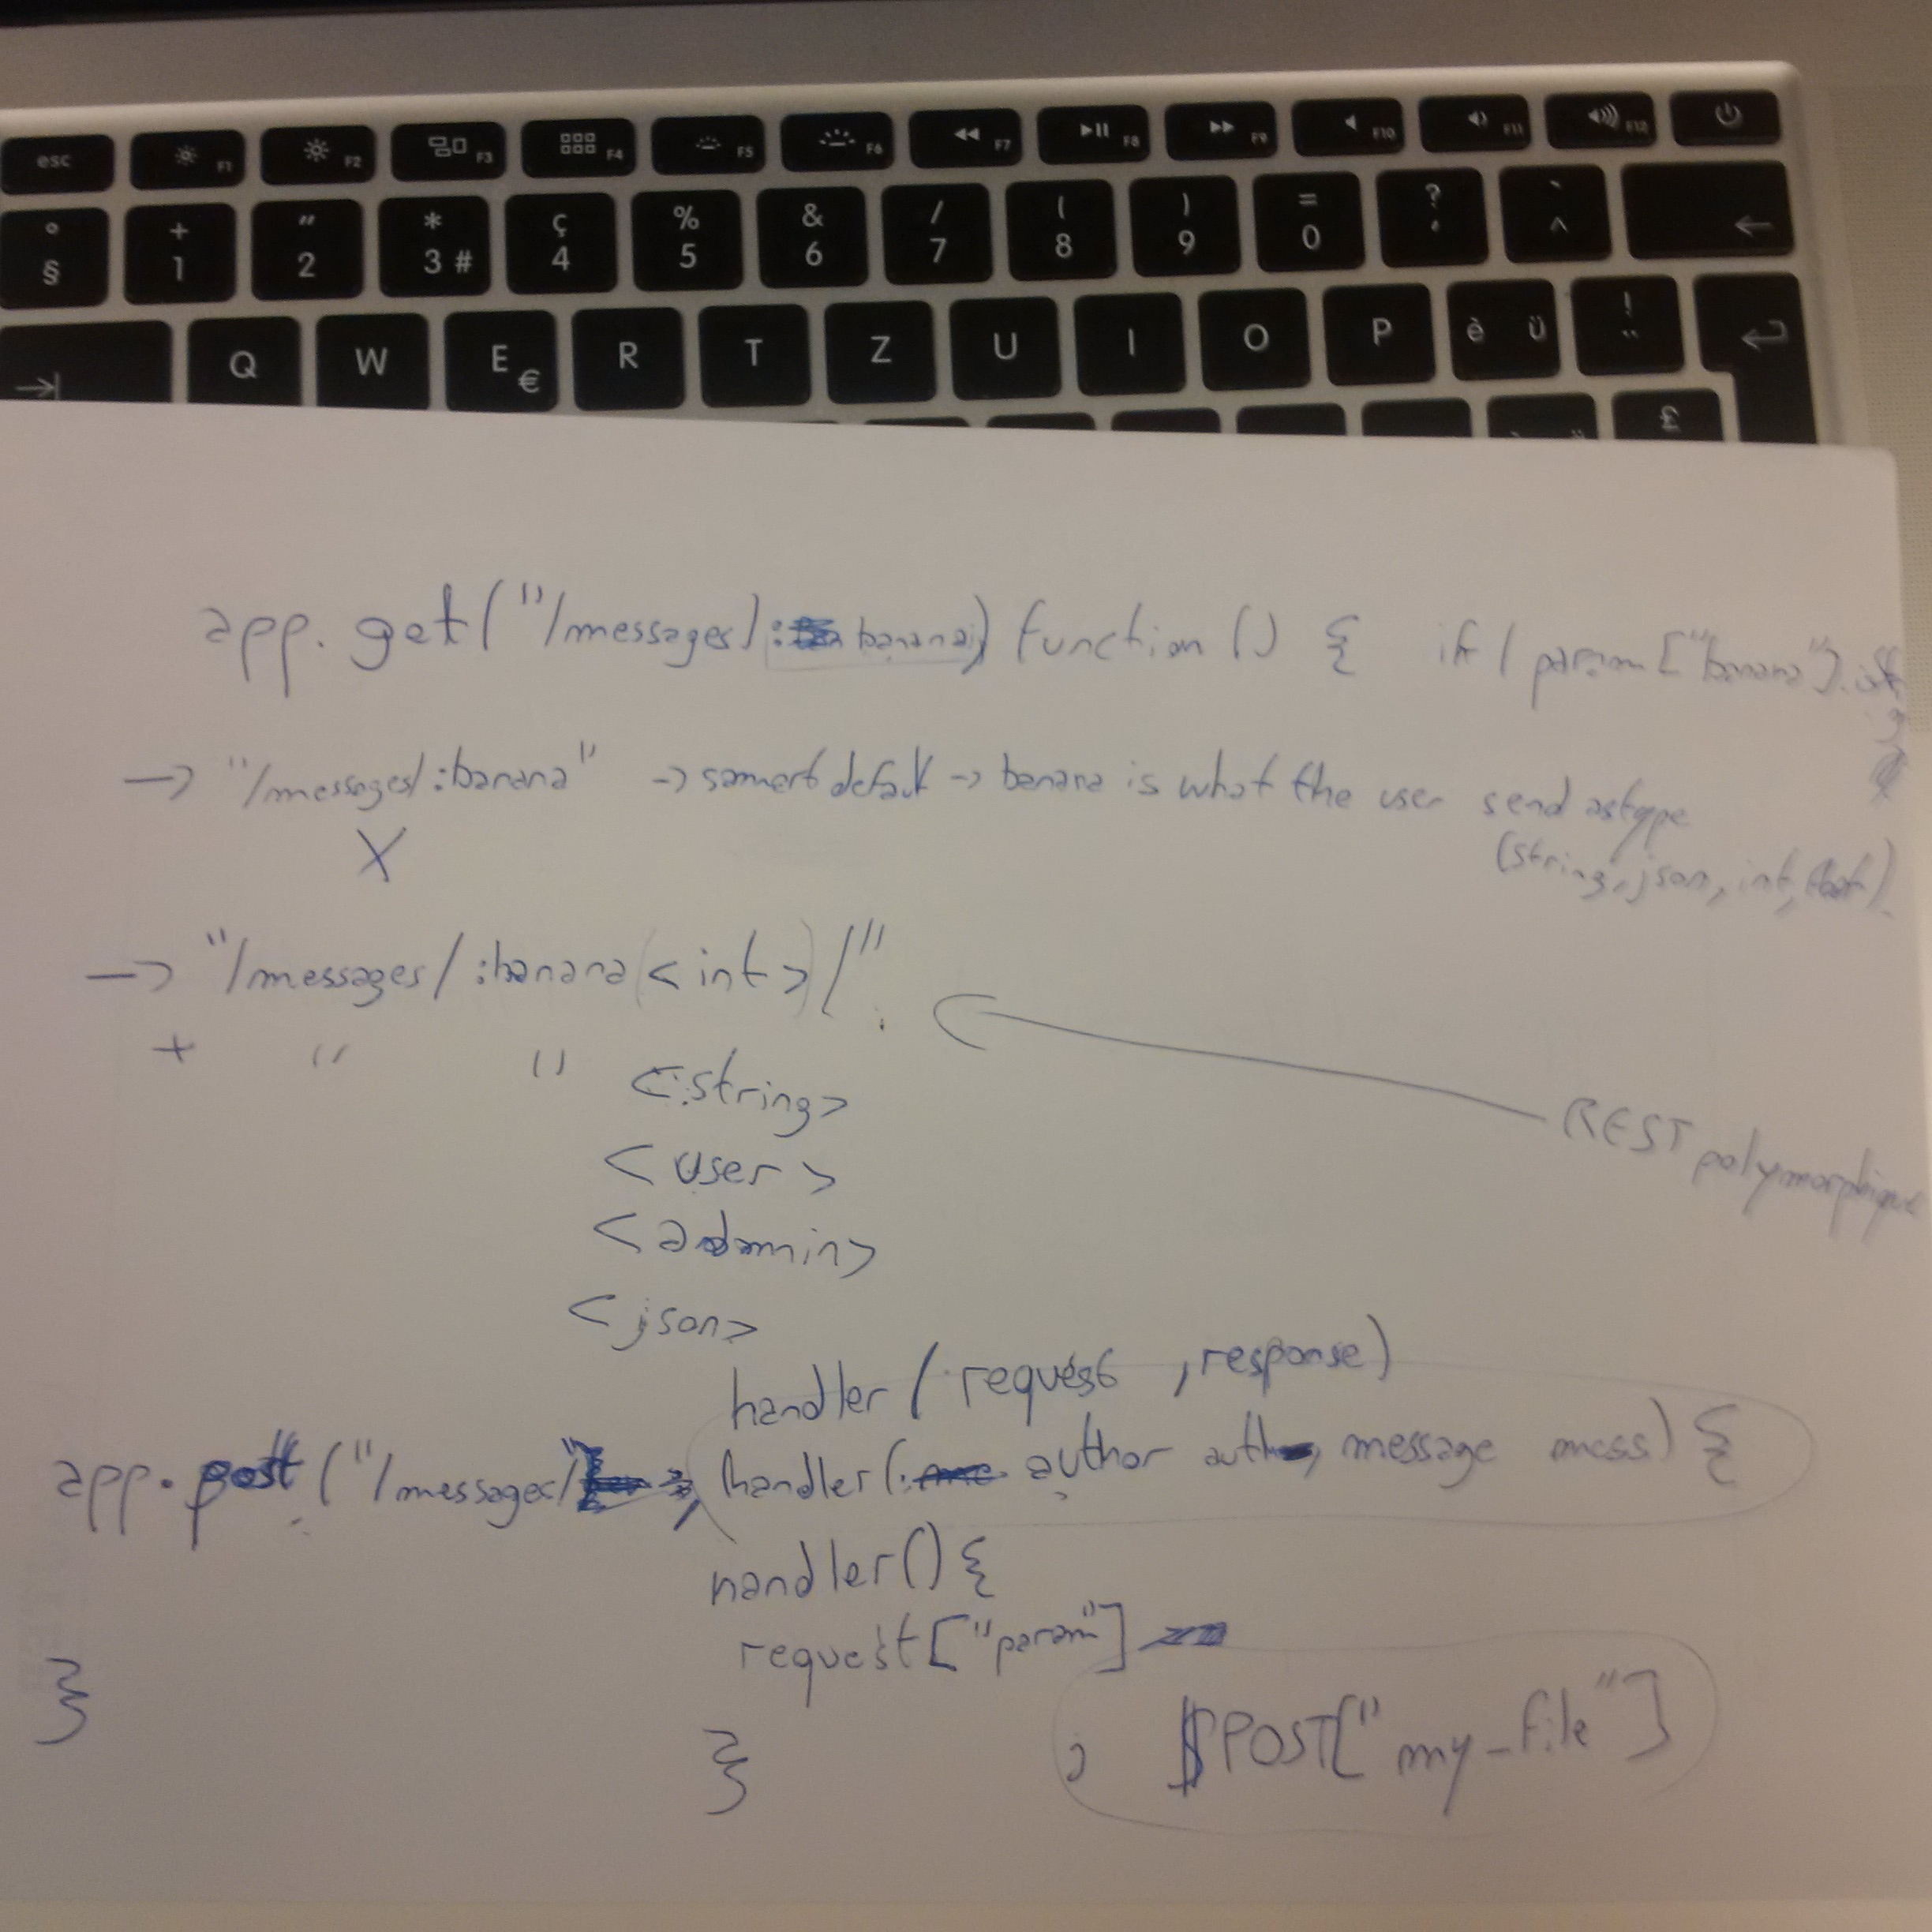 esc F1 F2 F3 F4 F5 F6 F7 F8 F9 F10 F11 F12
° + " * ç % & / ( ) = ? `
§ 1 2 3 # 4 5 6 7 8 9 0 ' ^
Q W E € R T Z U I O P è ü ! ¨
£
app.get("/messages/:banana) function () { if ( param["banana"].
}
→ "/messages/:banana" → → banana is what the user send as type
X
(string, json, int, float)
→ "/messages/:banana(<int>)/"
+ " " <string>
REST polymorphique
<user>
<admin>
<json>
handler (request, response)
app.post("/messages/", handler( author auth, message mess) {
handler() {
request["param"]
} ; $POST["my_file"]
}